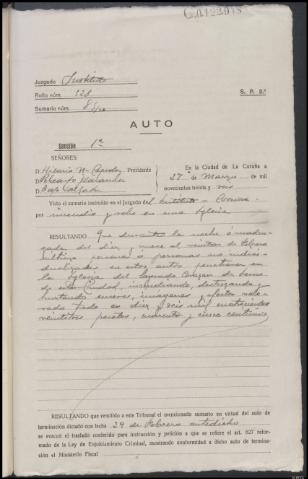 Juzgado Instituto
Rollo núm. 128
Sumario núm.
S. P. 2.ª
AUTO
Sección 1ª
SEÑORES:
D. Presidente
D.
D. José
En la Ciudad de La Coruña a
27 de Marzo de mil
novecientos treinta y seis
Visto el sumario instruido en el juzgado del Instituto - Coruña
por incendio y robo en una Iglesia
RESULTANDO Que durante la noche o madru-
gada del diez y nueve al veintiuno de Febrero
último persona o personas no indivi-
dualizadas en estos autos penetraron en
la Iglesia del Sagrado Corazón de Jesús
de esta Ciudad, incendiando, destrozando y
hurtando enseres, imágenes y efectos valo-
rado todo en diez y seis mil cuatrocientas
veintitres pesetas, cuarenta y cinco céntimos
RESULTANDO que remitido a este Tribunal el mencionado sumario en virtud del auto de
terminación dictado con fecha 29 de Febrero antedicho
se evacuó el traslado conferido para instrucción y petición a que se refiere el art. 627 refor-
mado de la Ley de Enjuiciamiento Criminal, mostrando conformidad a dicho auto de termina-
ción el Ministerio Fiscal